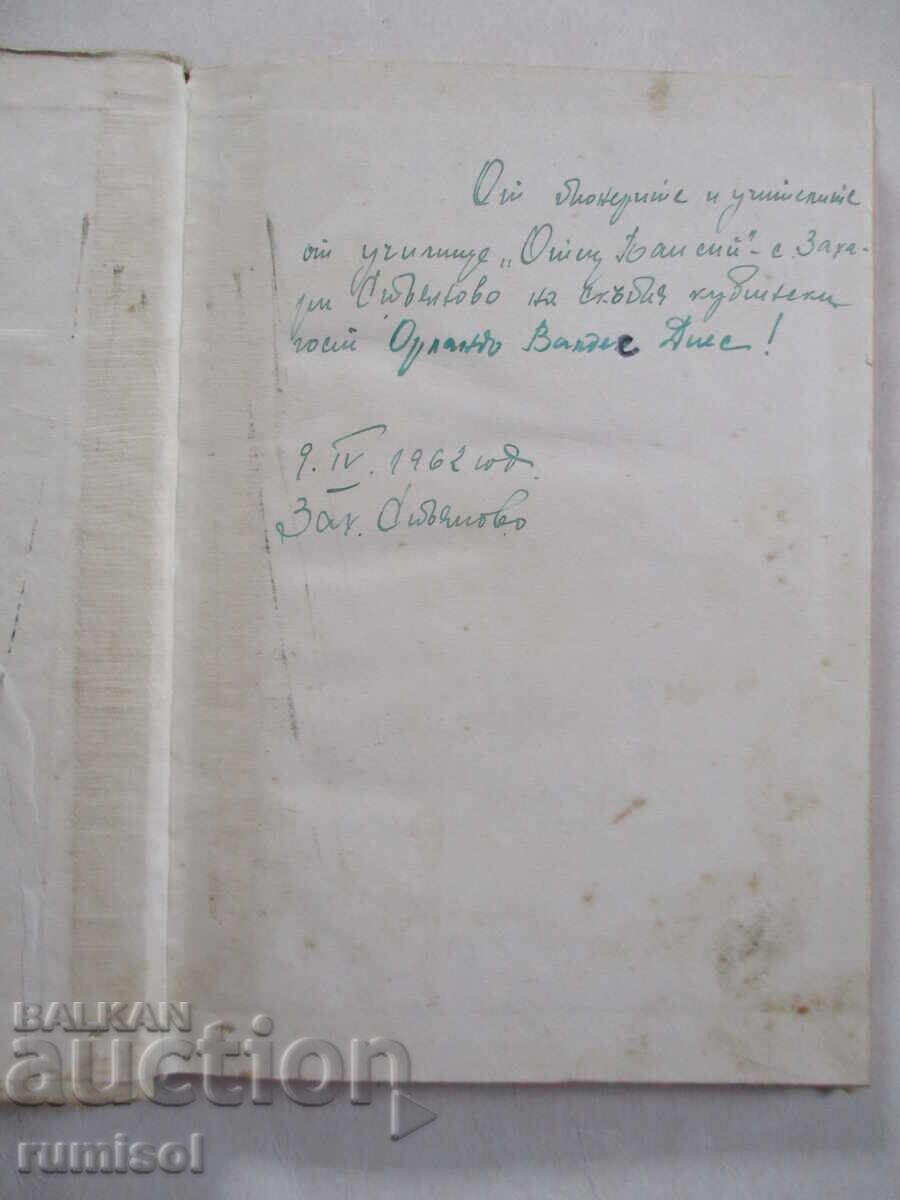 От пионерите и учителите
от училище „Отец Паисий" - с. Заха-
ри Стояново на скъпия кубински
гост Орландо Валдес Диес!
9. IV. 1962 год.
Зах. Стояново
BALKAN
auction
rumisol